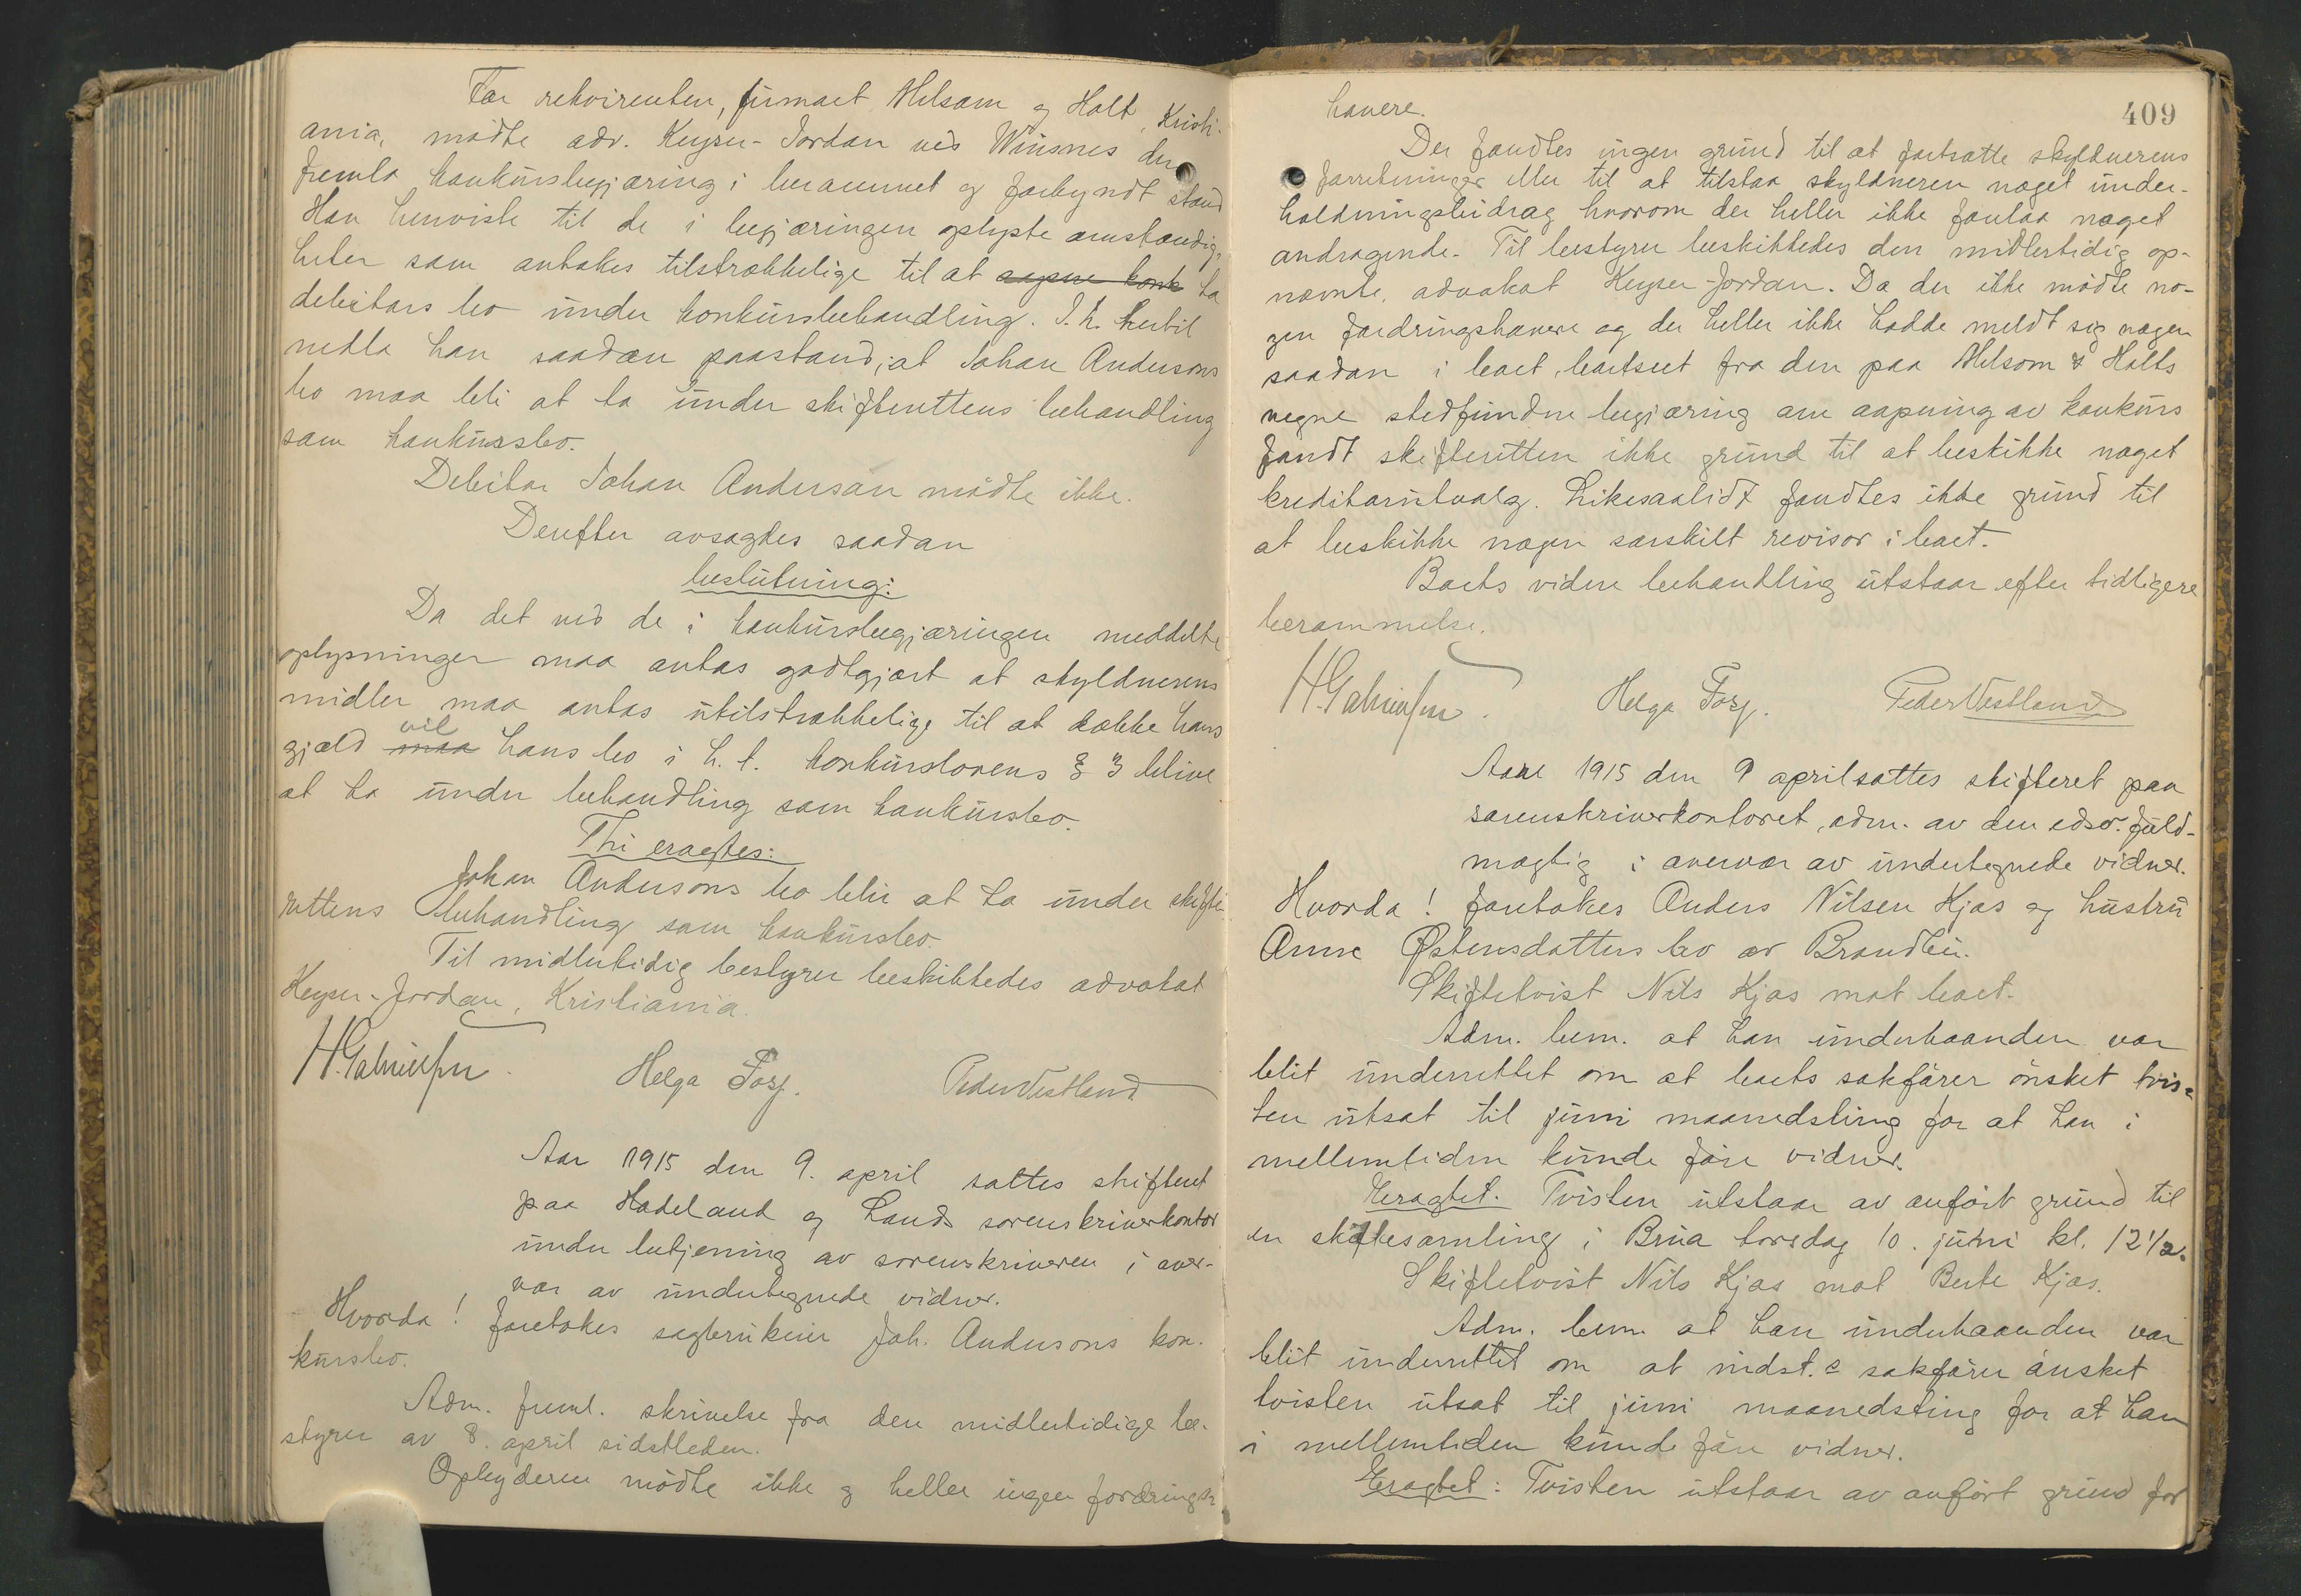 For rekvirenten, firmaet Melsom og Holt, Kristi-
ania, mødte adv. Keyser-Jordan ved Winsnes der
fremla konkursbegjæring i berammet og forkyndt stand
Han henviste til de i begjæringen oplyste omstændig-
heter som antakes tilstrækkelige til at aapne konk ta
debitors bo under konkursbehandling. I. h. hertil
nedla han saadan paastand; at Johan Andersons
bo maa bli at ta under skifterettens behandling
som konkursbo.
Debitor Johan Anderson mødte ikke.
Derefter avsagdes saadan
beslutning:
Da det ved de i konkursbegjæringen meddelte
oplysninger maa antas godtgjort at skyldnerens
midler maa antas utilstrækkelige til at dække hans
gjæld maa vil hans bo i h. t. konkurslovens § 3 blive
at ta under behandling som konkursbo.
Thi eragtes:
Johan Andersons bo blir at ta under skifte-
rettens behandling som konkursbo.
Til midlertidig bestyrer beskikkedes advokat
Keyser-Jordan, Kristiania.
Helga Peder Vestland
Aar 1915 den 9. april sattes skifteret
paa Hadeland og Lands sorenskriverkontor
under betjening av sorenskriveren i over-
vær av undertegnede vidner.
Hvorda! foretokes sagbrukeier Joh. Andersons kon-
kursbo.
Adm. freml. skrivelse fra den midlertidige be-
styrer av 8. april sidstleden.
Opbyderen mødte ikke og heller ingen fordrings-
409
havere.
Der fandtes ingen grund til at fortsætte skyldnerens
forretninger eller til at tilstaa skyldneren noget under-
holdningsbidrag hvorom der heller ikke forelaa noget
andragende. Til bestyrer beskikkedes den midlertidig op-
nævnte, advokat Keyser-Jordan. Da der ikke mødte no-
gen fordringshavere og der heller ikke hadde meldt sig nogen
saadan i boet, bortseet fra den paa Melsom & Holts
vegne stedfundne begjæring om aapning av konkurs
fandt skifteretten ikke grund til at beskikke noget
kreditorutvalg. Likesaalidt fandtes ikke grund til
at beskikke nogen særskilt revisor i boet.
Boets videre behandling utstaar efter tidligere
berammelse.
Helga Peder Vestland
Aar 1915 den 9 april sattes skifteret paa
sorenskriverkontoret, adm. av den edsv. fuld-
mægtig i overvær av undertegnede vidner.
Hvorda! foretokes Anders Nilsen Kjos og hustru
Anne Østensdatters bo av Brandbu.
Skiftetvist Nils Kjos mot boet.
Adm. bem. at han underhaanden var
blit underrettet om at boets sakfører ønsket tvis-
ten utsat til juni maanedsting for at han i
mellemtiden kunde føre vidner.
Eragtet. Tvisten utstaar av anført grund til
en skiftesamling i Brua torsdag 10. juni kl. 12 1/2.
Skiftetvist Nils Kjos mot Berte Kjos.
Adm. bem. at han underhaanden var
blit underrettet om at indst.s sakfører ønsket
tvisten utsat til juni maanedsting for at han
i mellemtiden kunde føre vidner.
Eragtet: Tvisten utstaar av anført grund for